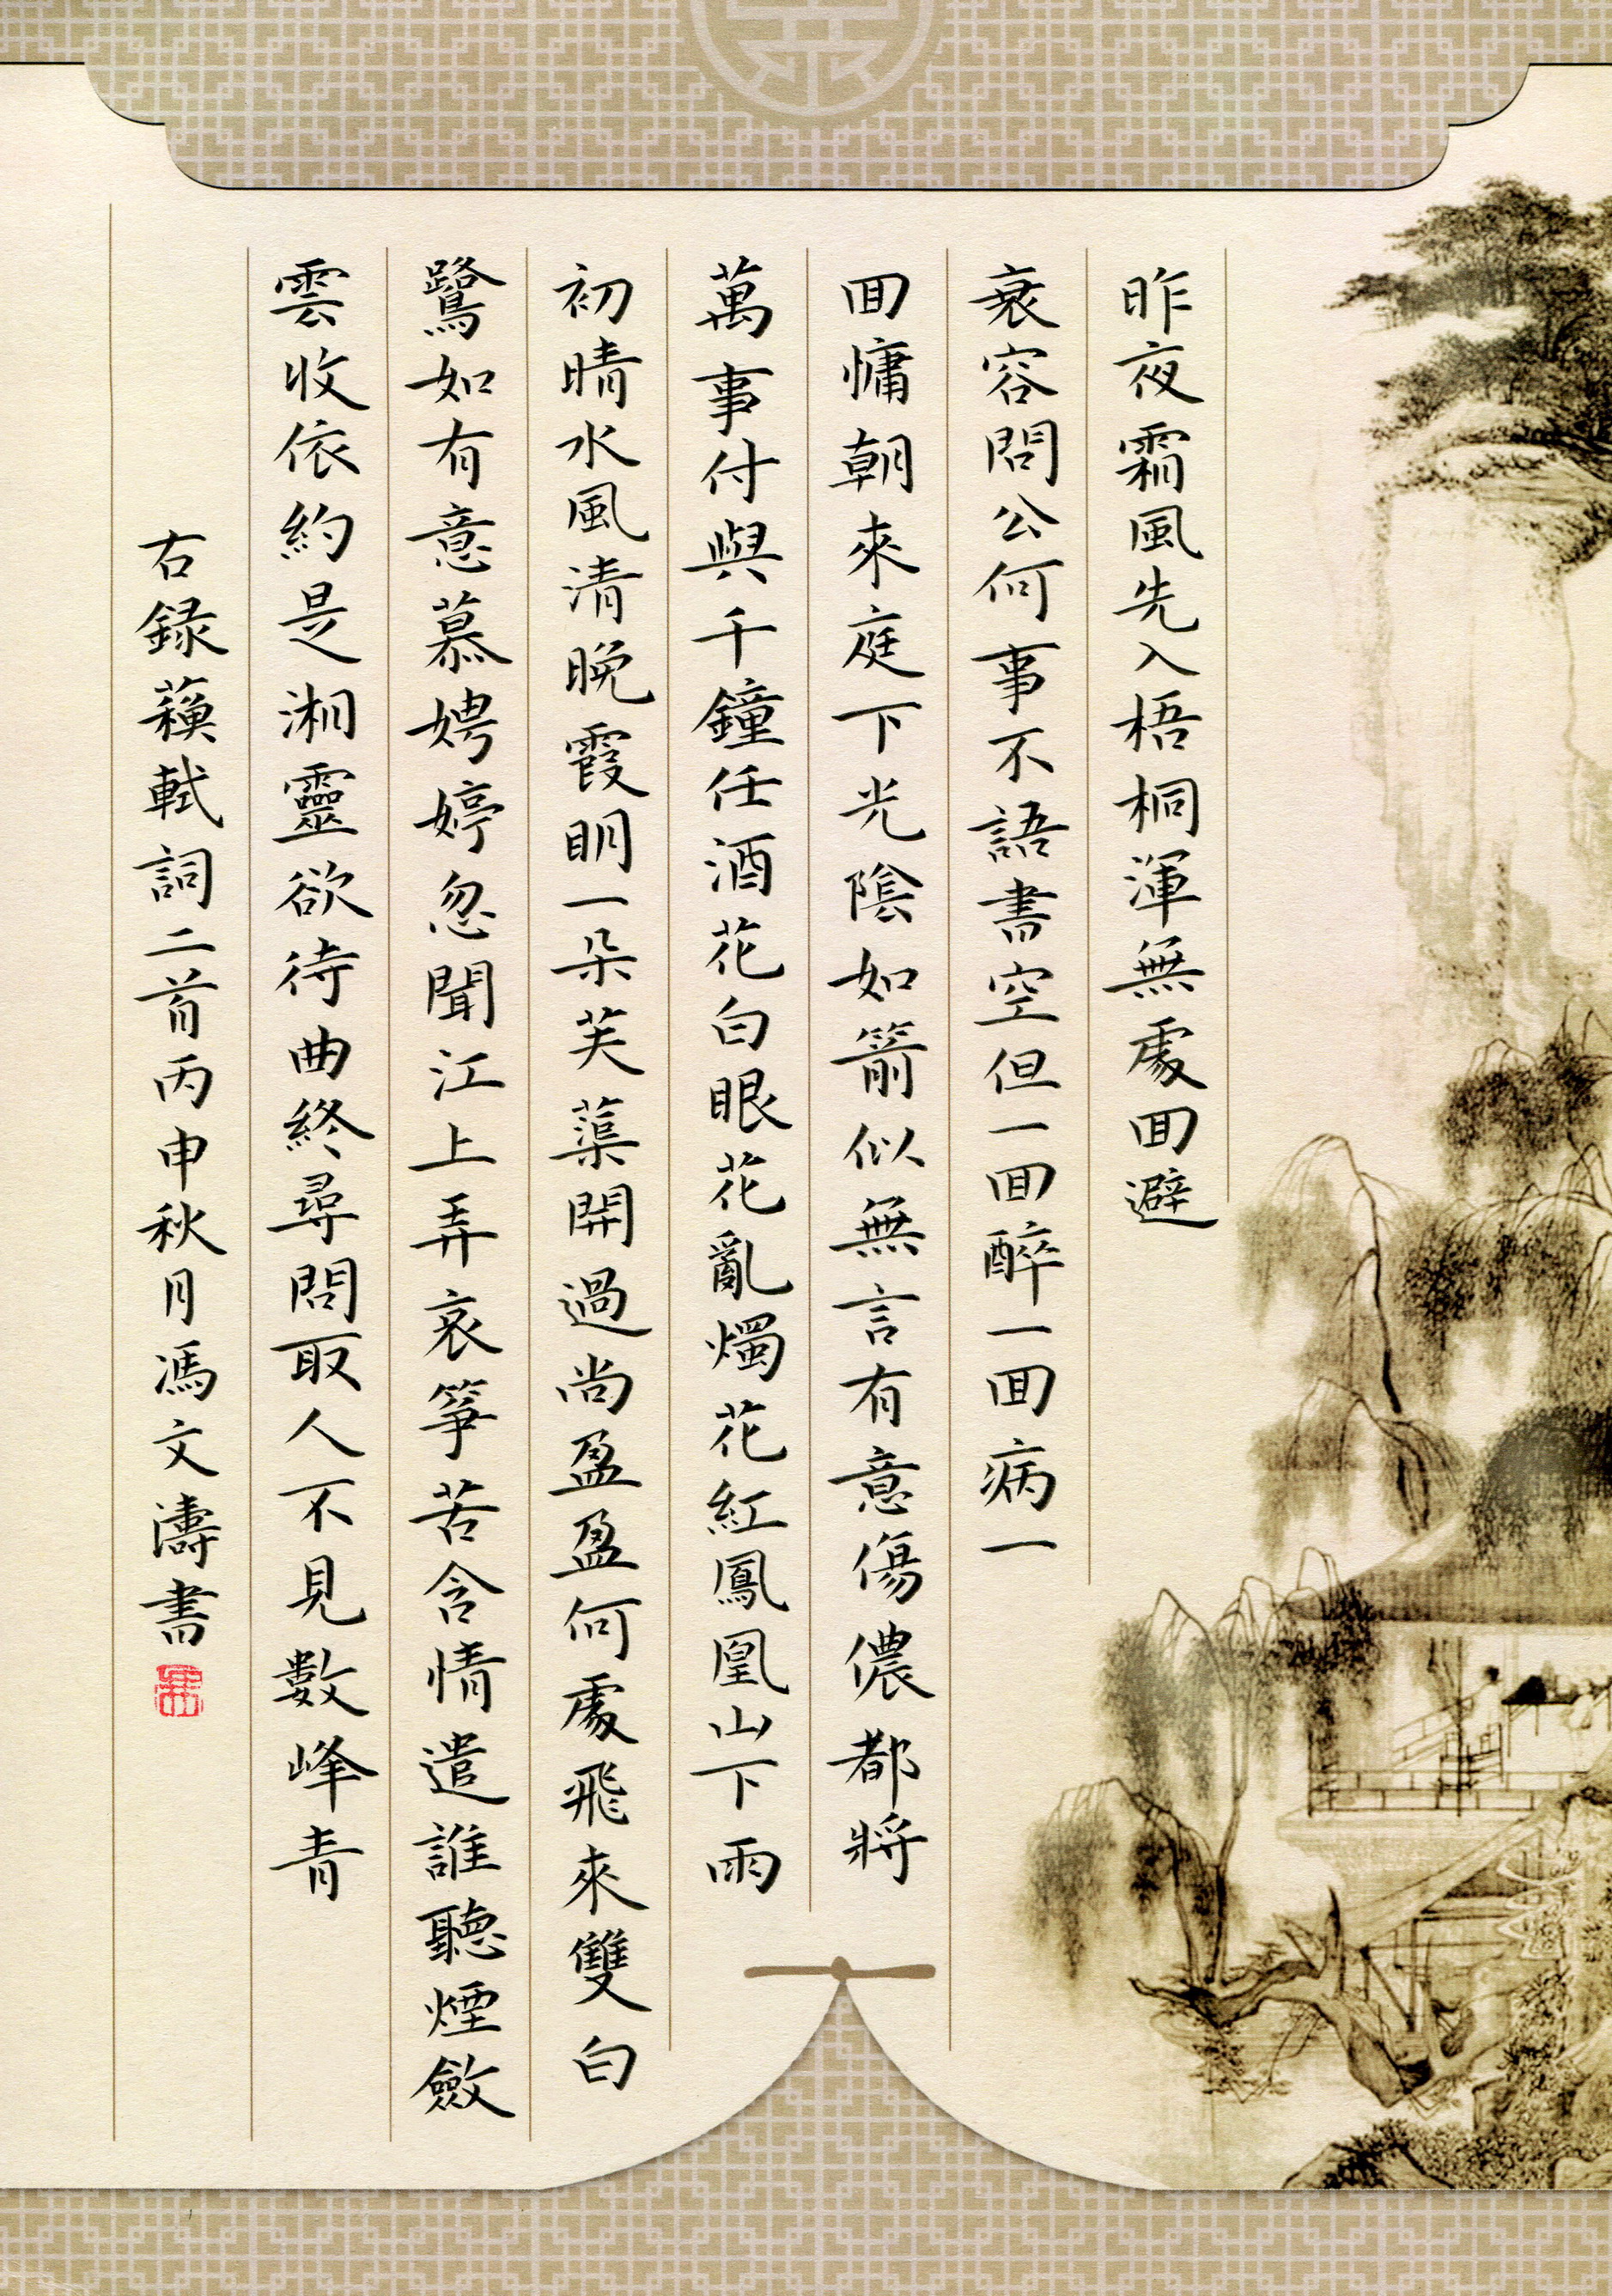 昨夜霜風先入梧桐渾無處回避
衰容問公何事不語書空但一回醉一回病一
回慵朝來庭下光陰如箭似無言有意傷儂都將
萬事付與千鐘任酒花白眼花亂燭花紅鳳凰山下雨
初晴水風清晚霞明一朵芙蕖開過尚盈盈何處飛來雙白
鷺如有意慕娉婷忽聞江上弄哀筝苦含情遣誰聽煙斂
雲收依約是湘靈欲待曲終尋問取人不見數峰青
右録蘓軾詞二首丙申秋月馮文濤書